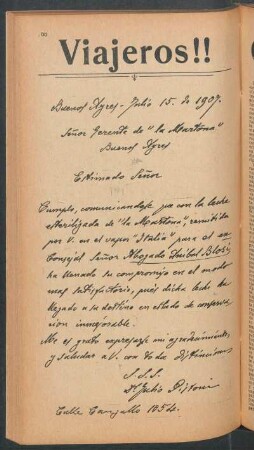 Viajeros!!
Buenos Ayres - Julio 15. de 1907.
Señor Gerente de "la Martona"
Buenos Ayres
Estimado Señor
Cumplo, comunicandole que con la leche
esterilizada de "la Martona", remitida
por V. en el vapor "Italia" para el ex
Consejal Señor Abogado Anibal Blosi,
ha llenado su compromiso en el modo
mas satisfactorio, pués dicha leche ha
llegado a su destino en estado de conserva-
cion inmejorable.
Me es grato expresarle mi agradecimiento,
y saludar a V. con toda distincion
S.S.S.
Dr Julio Pistoni
Calle Cangallo 1854.